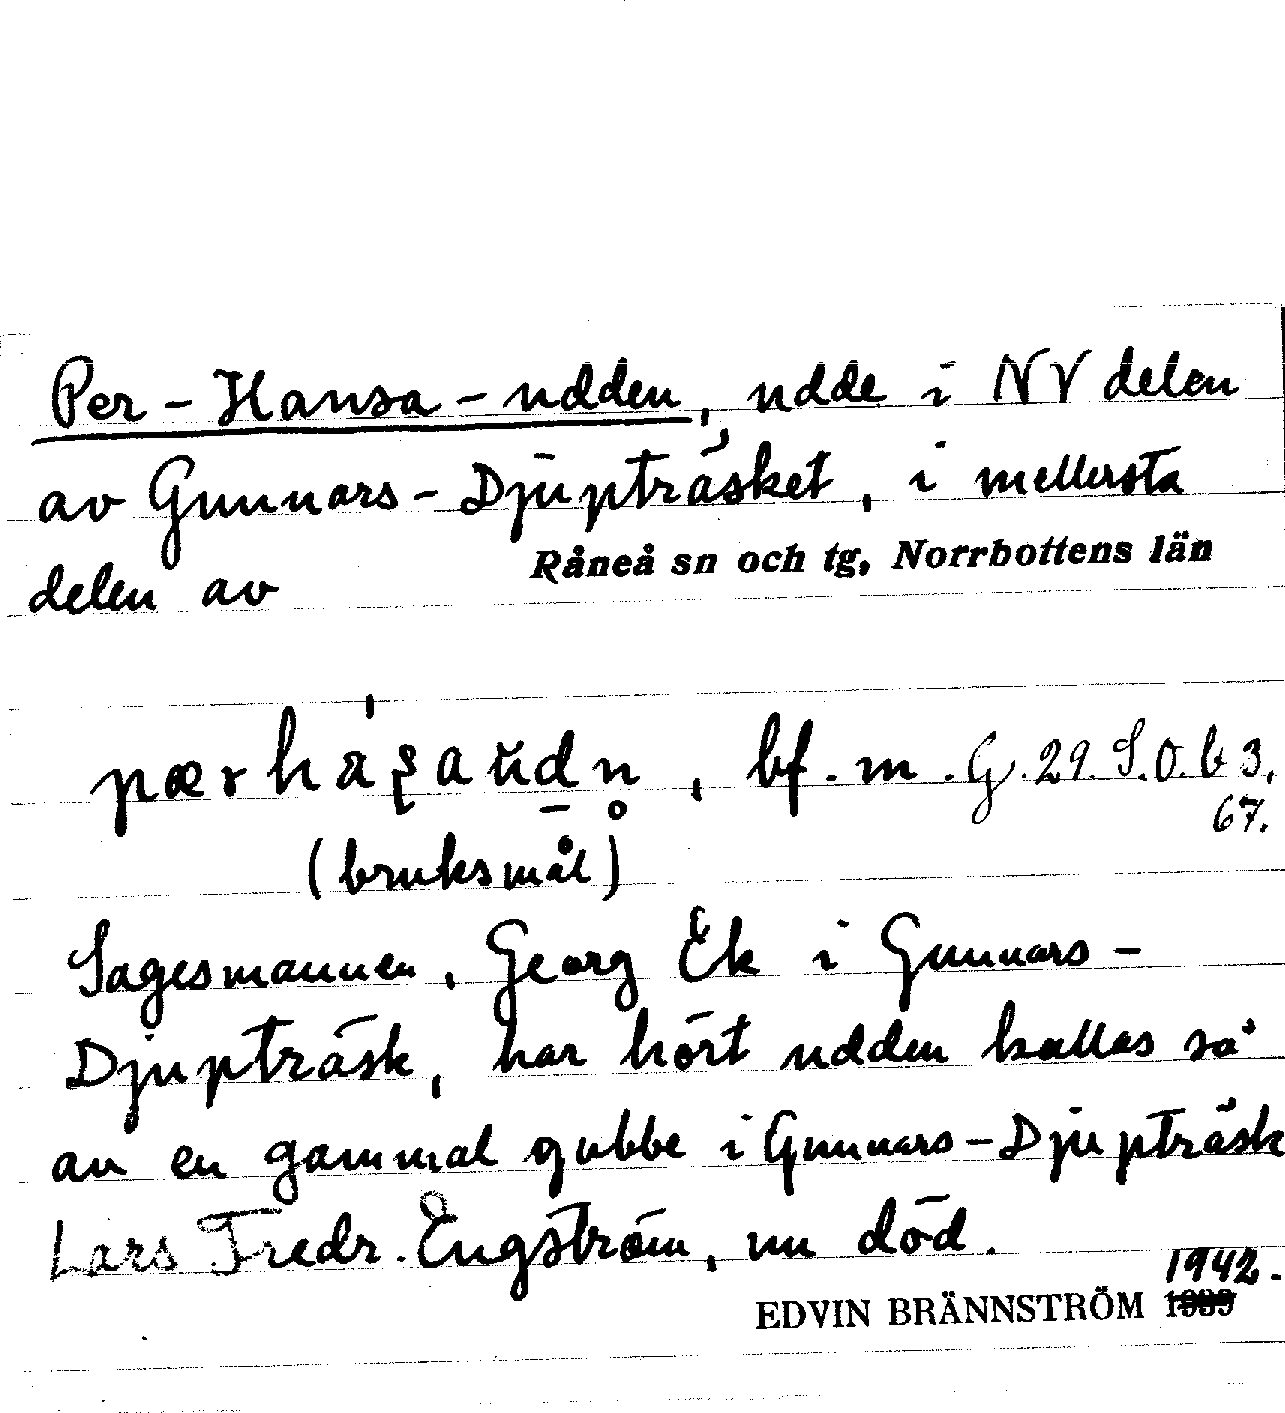 Per-Hansa-udden, udde i NV delen
av Gunnars-Djupträsket, i mellersta
delen av Råneå sn och tg, Norrbottens län
bf. m. G. 29. S.O. b 3,
67.
(bruksmål)
Sagesmannen, Georg Ek i Gunnars-
Djupträsk, har hört udden kallas så
av en gammal gubbe i Gunnars-Djupträsk
Lars Fredr. Engström, nu död.
1942.
EDVIN BRÄNNSTRÖM 1939